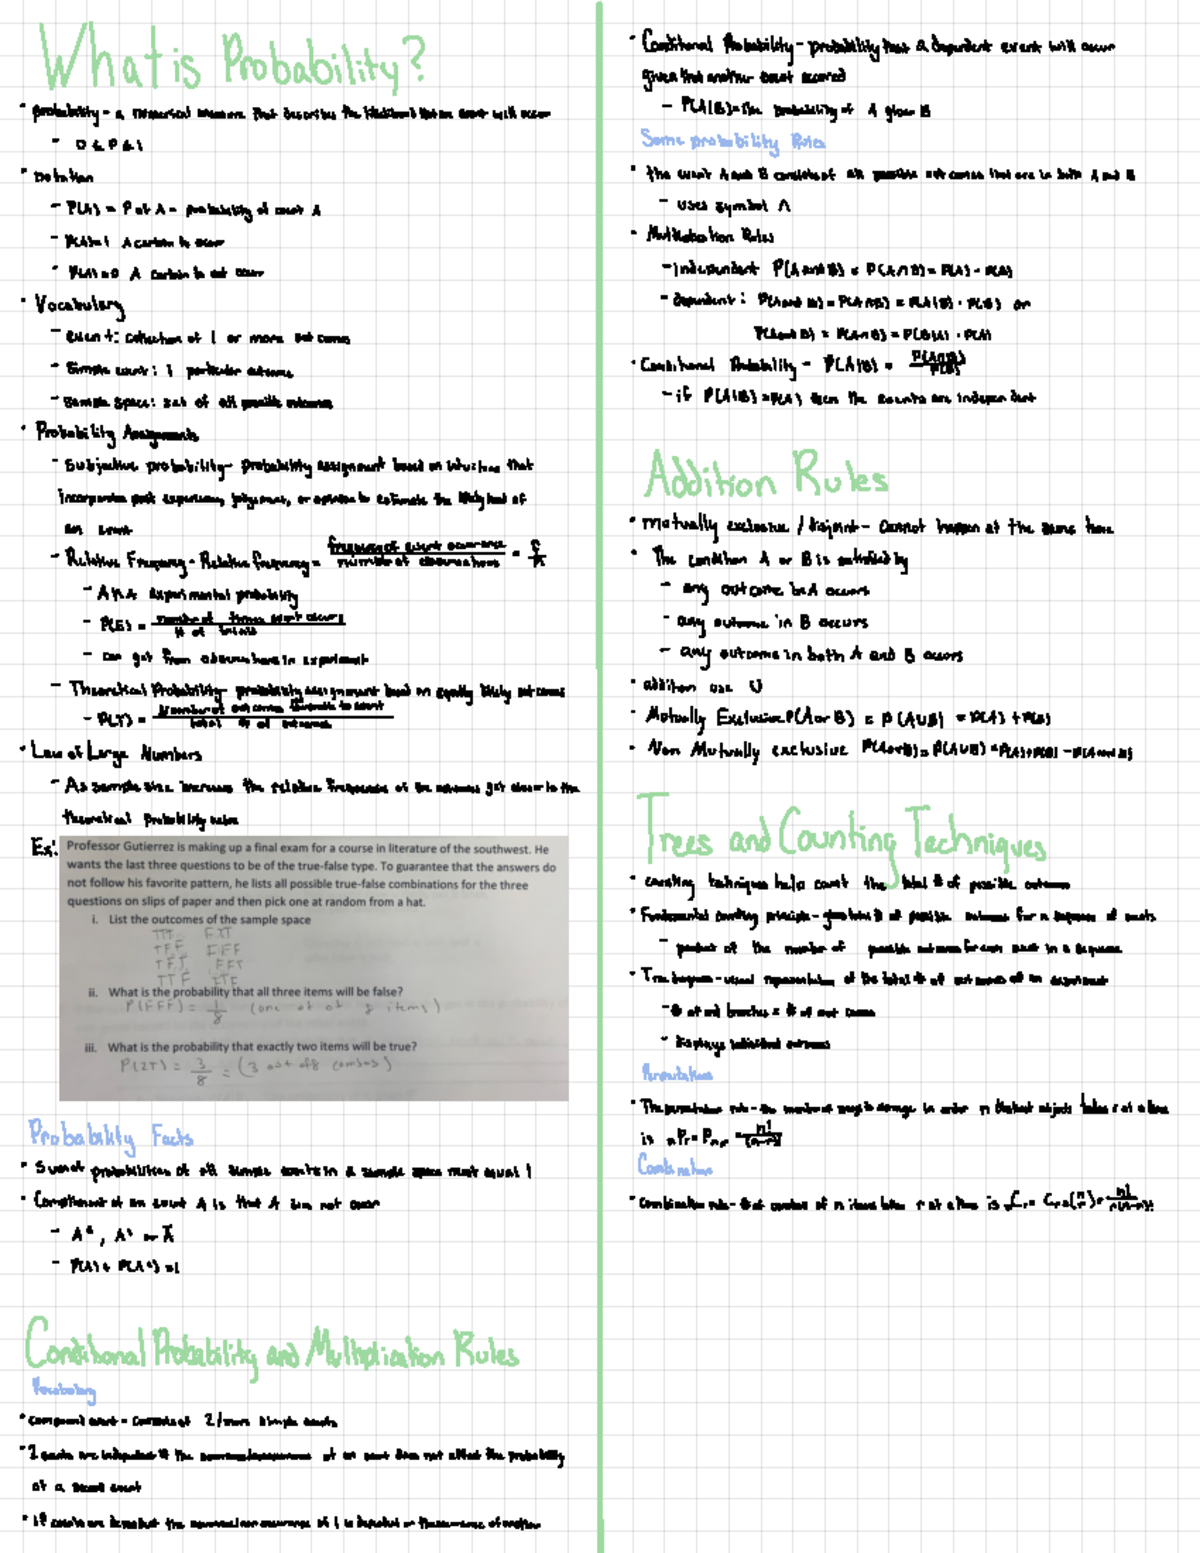 What is Probability?
• probability - a numerical measure that describes the likelihood that an event will occur
- 0 ≤ P ≤ 1
• notation
- P(A) = P of A - probability of event A
- P(A)=1 A certain to occur
- P(A)=0 A certain to not occur
• Vocabulary
- event: collection of 1 or more outcomes
- Simple event: 1 particular outcome
- Sample space: set of all possible outcomes
• Probability Assignments
- Subjective probability - probability assignment based on intuition that
incorporates past experiences, judgement, or opinion to estimate the likelyhood of
an event
- Relative Frequency - Relative frequency = frequency of event occurrence / number of observations = f/n
- A.K.A experimental probability
- P(E) = number of times event occurs / # of trials
- can get from observations in experiment
- Theoretical Probability - probability assignment based on equally likely outcomes
- P(T) = Number of outcomes favorable to event / total # of outcomes
• Law of Large Numbers
- As sample size increases the relative frequencies of the outcomes get closer to the
theoretical probability value
Ex: Professor Gutierrez is making up a final exam for a course in literature of the southwest. He
wants the last three questions to be of the true-false type. To guarantee that the answers do
not follow his favorite pattern, he lists all possible true-false combinations for the three
questions on slips of paper and then pick one at random from a hat.
i. List the outcomes of the sample space
TTT FXT
TFF FFF
TFT FFT
TTF FTF
ii. What is the probability that all three items will be false?
P(FFF) = 1/8 (one out of 8 items)
iii. What is the probability that exactly two items will be true?
P(2T) = 3/8 = (3 out of 8 combos)
Probability Facts
• Sum of probabilities of all simple events in a sample space must equal 1
• Compliment of an event A is that A does not occur
- Aᶜ, A' or Ā
- P(A) + P(Aᶜ) = 1
Conditional Probability and Multiplication Rules
Vocabulary
• compound event - consists of 2/more simple events
• 2 events are independent if the occurrence/nonoccurrence of an event does not affect the probability
of a second event
• If events are dependent the occurrence/non occurrence of 1 is dependent on the occurrence of another
• Conditional Probability - probability that a dependent event will occur
given that another event occured
- P(A|B) = the probability of A given B
Some probability Rules
• the event A and B consists of all possible outcomes that are in both A and B
- uses symbol ∩
• Multiplication Rules
- independent P(A and B) = P(A∩B) = P(A) · P(B)
- dependent: P(A and B) = P(A∩B) = P(A|B) · P(B) or
P(A and B) = P(A∩B) = P(B|A) · P(A)
• Conditional Probability - P(A|B) = P(A∩B)/P(B)
- if P(A|B) = P(A) then the events are independent
Addition Rules
• mutually exclusive / disjoint - cannot happen at the same time
• The condition A or B is satisfied by
- any outcome in A occurs
- any outcome in B occurs
- any outcome in both A and B occurs
• addition use U
- Mutually Exclusive P(A or B) = P(A∪B) = P(A) + P(B)
- Non Mutually exclusive P(A or B) = P(A∪B) = P(A)+P(B) - P(A and B)
Trees and Counting Techniques
• counting techniques help count the total # of possible outcomes
• Fundamental counting principle - gives total # of possible outcomes for a sequence of events
- product of the number of possible outcomes for each event in a sequence
• Tree diagram - visual representation of the total # of outcomes of an experiment
- # of end branches = # of outcomes
- Displays individual outcomes
Permutations
• The permutation rule - the number of ways to arrange in order n distinct objects taken r at a time
is nPr = Pn,r = n!/(n-r)!
Combination
• combination rule - # of combos of n items taken r at a time is nCr = Cn,r = (n r) = n!/r!(n-r)!